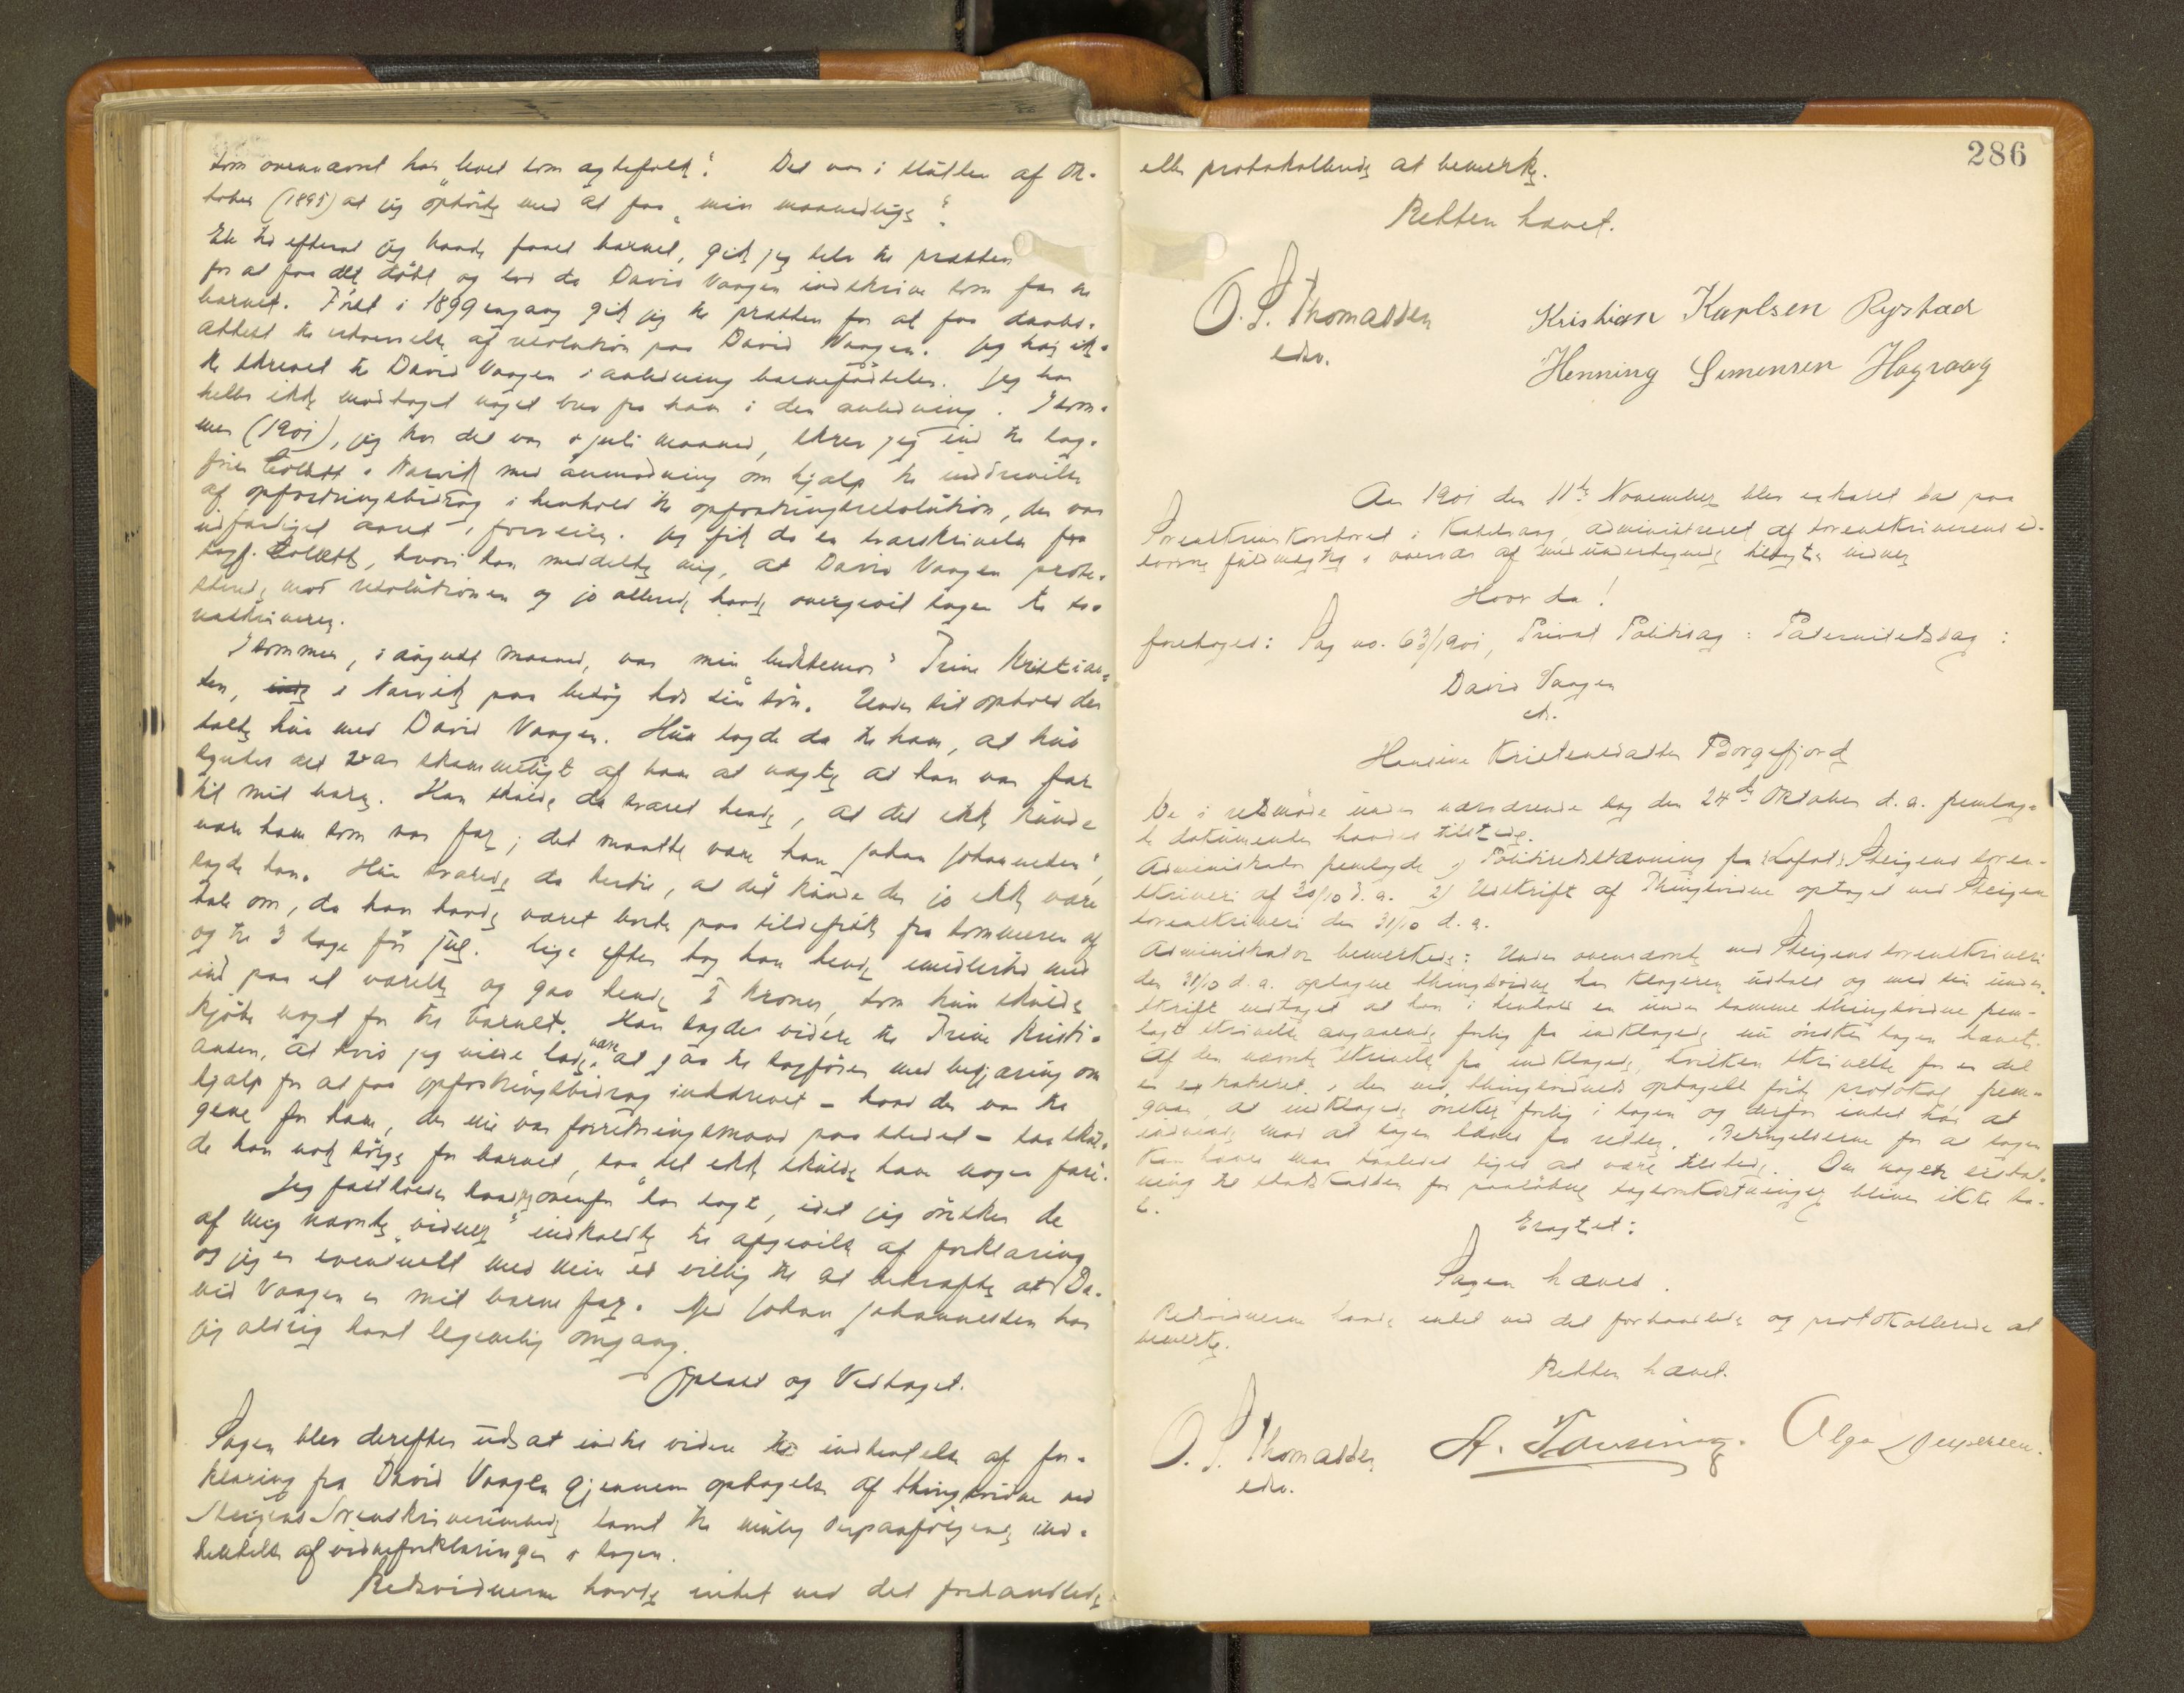 som ovennævnt har levet som ægtefolk". Det var i slutten af Ok-
tober (1895) at jeg ophørte med at faa "min maanedlige".
En tid efterat jeg havde faaet barnet, gik jeg selv til præsten
for at faa det døbt og lod da David Vaagen indskrive som far til
barnet. Først i 1899 engang gik jeg til præsten for at faa daabs-
attest til udvirkelse af resolution paa David Vaagen. Jeg har ik-
ke skrevet til David Vaagen i anledning barnefødselen. Jeg har
heller ikke modtaget noget brev fra ham i den anledning. I som-
mer (1901), jeg tror det var i juli maaned, skrev jeg ind til sag-
fører i Narvik med anmodning om hjælp til inddrivelse
af opfostringsbidrag i henhold til opfostringsresolution, der var
udfærdiget aaret i forveien. Jeg fik da en svarskrivelse fra
sagf. hvori han meddelte mig, at David Vaagen prote-
sterede mod resolutionen og jo allerede havde overgivet sagen til so-
renskriveren.
I sommer, i august maaned, var min bedstemor Trine Kristian-
sen, i Narvik paa besøg hos sin søn. Under sit ophold der
talte hun med David Vaagen. Hun sagde da til ham, at hun
syntes det var skammeligt af ham at nægte at han var far
til mit barn. Han skulde da svaret hende, at det ikke kunde
være ham som var far; det maatte være han Johan Johannesen,
sagde han. Hun svarede da hertil, at det kunde der jo ikke være
tale om, da han havde været borte paa sildefiske fra sommeren af
og til 3 dage før jul. Lige efter tog han hende imidlertid med
ind paa et værelse og gav hende 2 kroner, som hun skulde
kjøbe noget for til barnet. Han sagde videre til Trine Kristi-
ansen, at hvis jeg vilde lade være at gaa til sagfører med begjæring om
hjælp for at faa opfostringsbidrag inddrevet - hvad der var til
gene for ham, der nu var forretningsmand paa stedet - saa skul-
de han nok sørge for barnet, saa det ikke skulde have nogen fare.
Jeg fastholder hvad jeg ovenfor har sagt, idet jeg ønsker de
af mig nævnte "vidner" indkaldte til afgivelse af forklaring
og jeg er eventuelt med min ed villig til at bekræfte at Da-
vid Vaagen er mit barns far. Med Johan Johannesen har
jeg aldrig havt legemlig omgang.
Oplæst og Vedtaget.
Sagen blev derefter udsat indtil videre til indhentelse af for-
klaring fra David Vaagen gjennem optagelse af thingsvidne ved
Steigens Sorenskriverembede samt til mulig derpaafølgende ind-
hentelse af vidneforklaringer i sagen.
Retsvidnerne havde intet ved det forhandlede
286
eller protokollerede at bemerke.
Retten hævet.
O. S. Thomassen
edsv.
Kristian Karlsen Rystad
Henning Simensen Hagraag
Aar 1901 den 11te November blev extraret sat paa
Sorenskriverkontoret i Kabelvaag, administreret af sorenskriverens ed-
svorne fuldmægtig i overvær af medundertegnede tilsagte vidner
Hvor da!
foretoges: Sag no. 63/1901, Privat Politisag: Paternitetssag:
David Vaagen
ctr.
Hansine Kristensdatter Borgefjord
De i retsmøde under nærværende sag den 24de Oktober d. a. fremlag-
te dokumenter havdes tilstede.
Administrator fremlagde 1) Politiretsstævning fra Lofot Steigens soren-
skriveri af 20/10 d. a. 2) Udskrift af Thingsvidne optaget ved Steigen
sorenskriveri den 31/10 d. a.
Administrator bemerkede: Under ovennævnte ved Steigens sorenskriveri
den 31/10 d. a. optagne thingsvidne har klageren udtalt og med sin under-
skrift vedtaget at han i henhold en under samme thingsvidne frem-
lagt skrivelse angaaende forlig fra indklagede nu ønsker sagen hævet.
Af den nævnte skrivelse fra indklagede, hvilken skrivelse for en del
er extraheret i den ved thingsvidnets optagelse førte protokol frem-
gaar, at indklagede ønsker forlig i sagen og derfor intet har at
indvende mod at sagen hæves fra retten. Betingelserne for at sagen
kan hæves maa saaledes siges at være tilstede. Om nogen erstat-
ning til statskassen for paaløbne sagsomkostninger bliver ikke ta-
le.
Eragtet:
Sagen hæves.
Retsvidnerne havde intet ved det forhandlede og protokollerede at
bemerke.
Retten hævet.
O. S. Thomassen
edsv.
A. Tønsing. Olga Jespersen.